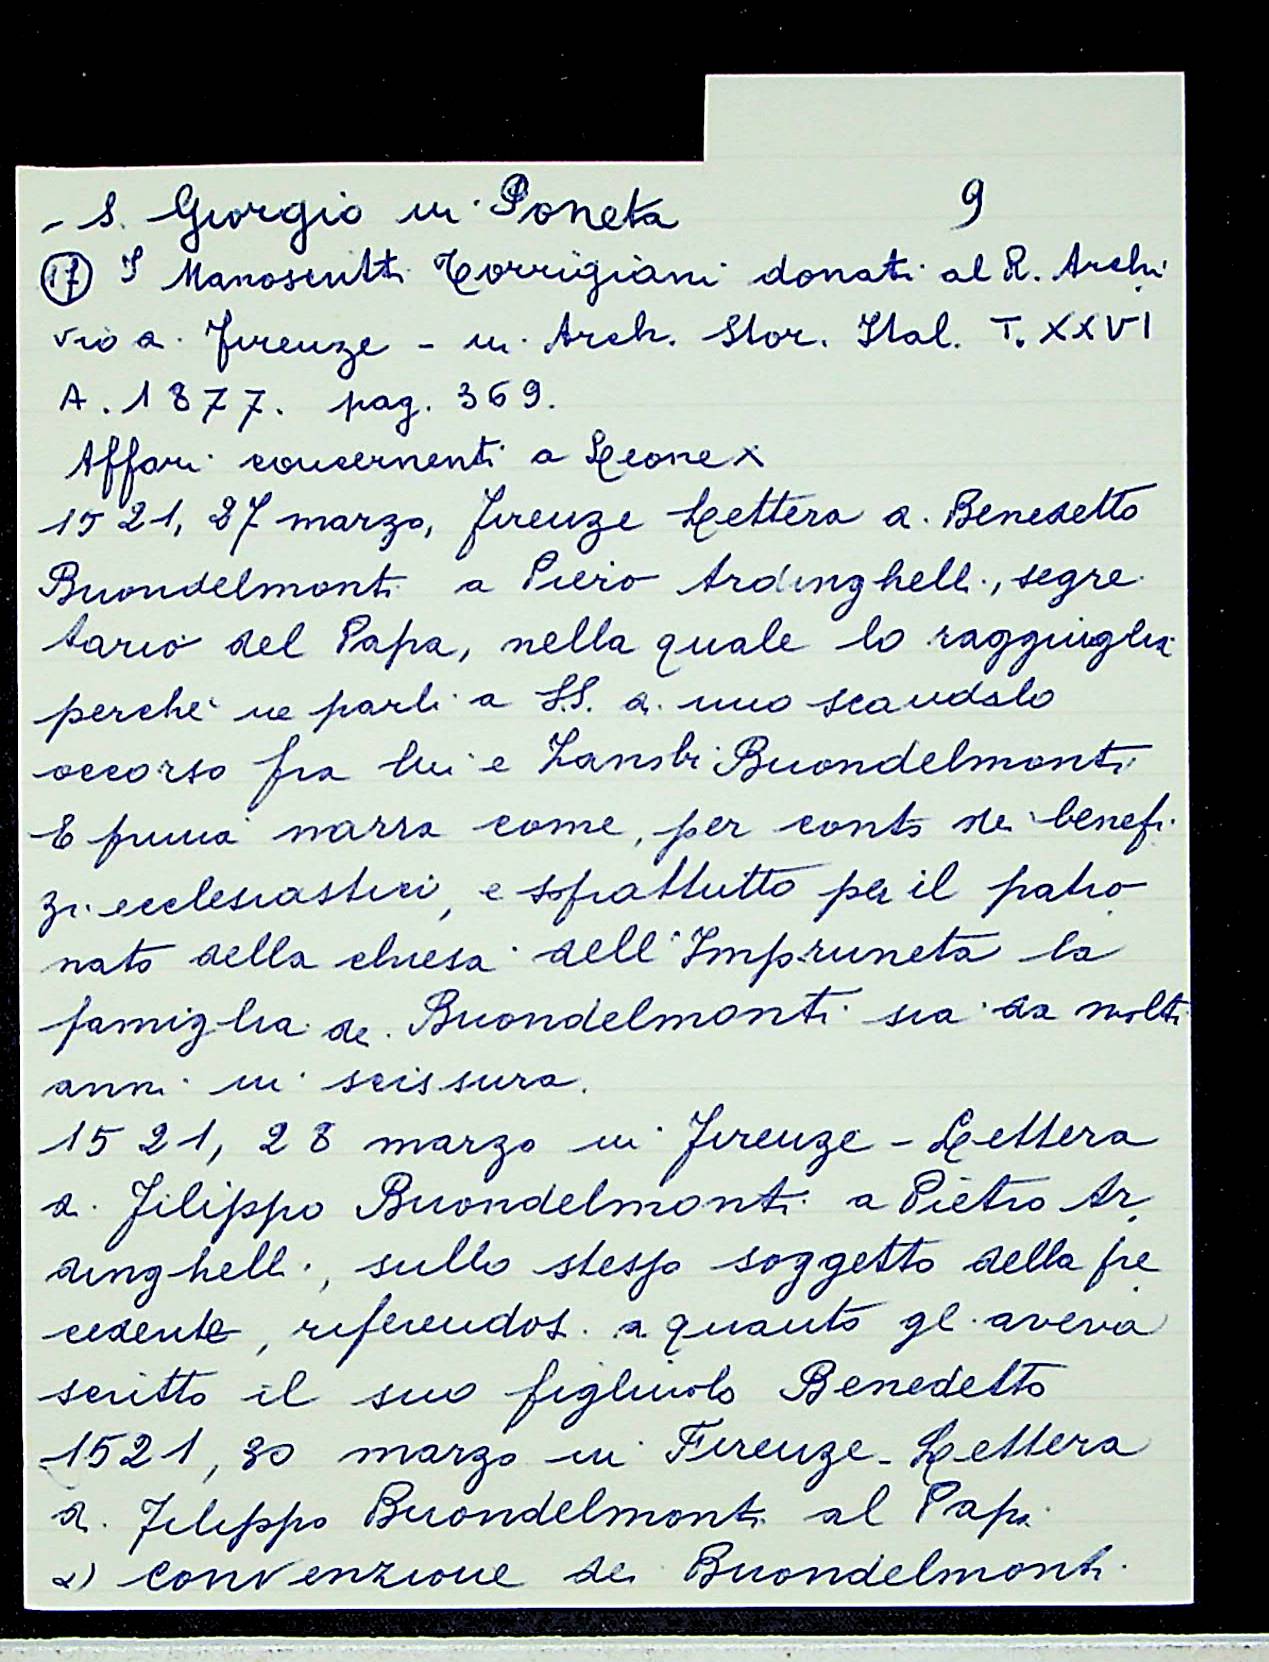 - S. Giorgio in Poneta 9
17 I Manoscritti Torrigiani donati al R. Archi
vio di Firenze - in Arch. Stor. Ital. T. XXVI
A. 1877. pag. 369.
Affari concernenti a Leone X
1521, 27 marzo, Firenze Lettera di Benedetto
Buondelmonti a Piero Ardinghelli, segre
tario del Papa, nella quale lo ragguaglia
perché ne parli a S.S. di uno scandalo
occorso fra lui e Zanobi Buondelmonti
E prima narra come, per conto dei benefi
zi ecclesiastici, e soprattutto per il patro
nato della chiesa dell'Impruneta la
famiglia dei Buondelmonti sia da molti
anni in scissura.
1521, 28 marzo in Firenze - Lettera
di Filippo Buondelmonti a Pietro Ar
dinghelli, sullo stesso soggetto della pre
cedente, riferendosi a quanto gli aveva
scritto il suo figliuolo Benedetto
1521, 30 marzo in Firenze - Lettera
di Filippo Buondelmonti al Papa
a) convenzione dei Buondelmonti